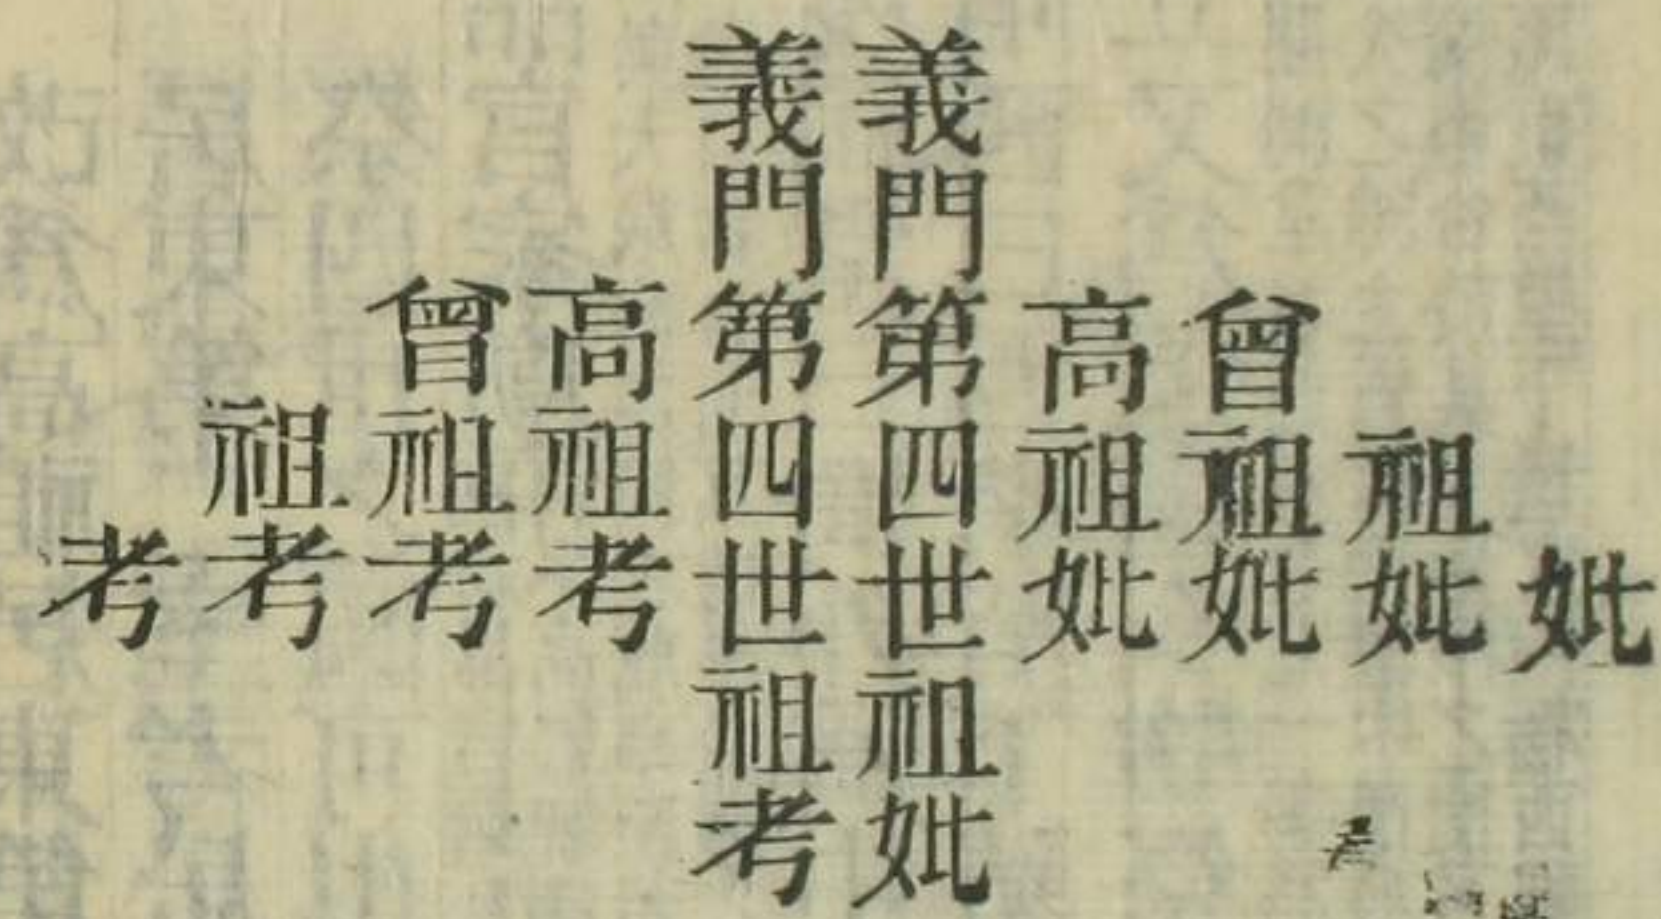 妣
祖妣
曾祖妣
高祖妣
義門第四世祖妣
義門第四世祖考
高祖考
曾祖考
祖考
考